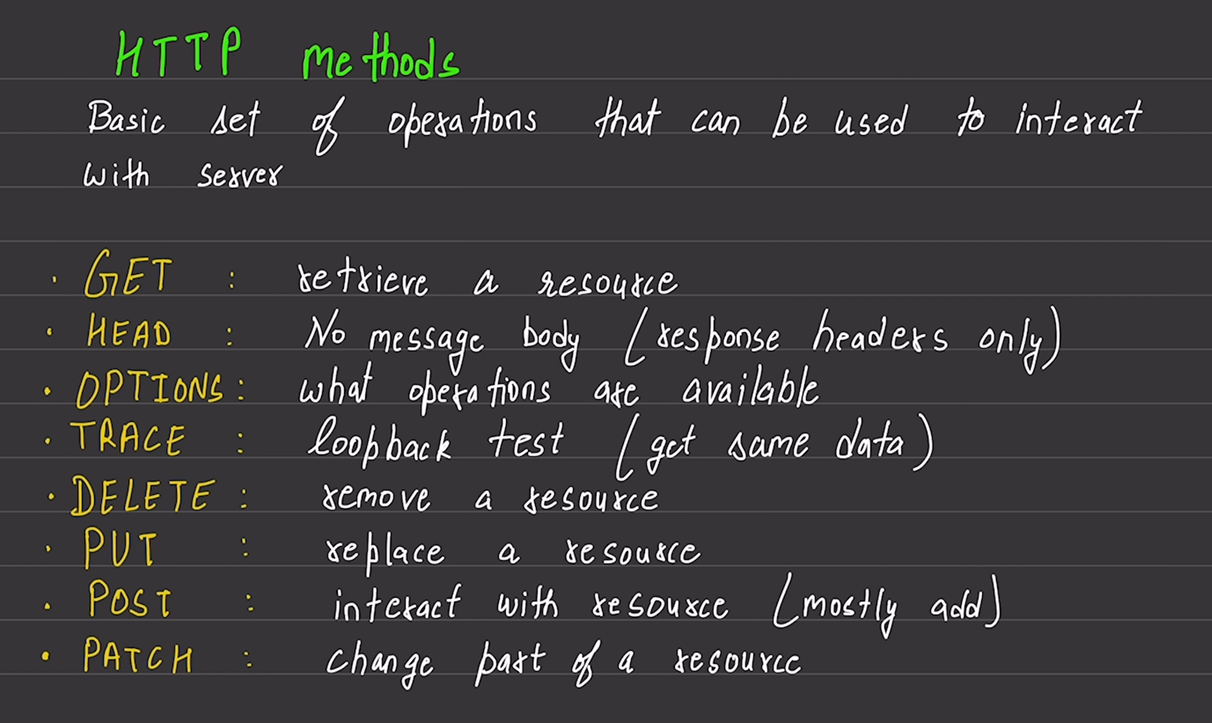 HTTP methods
Basic set of operations that can be used to interact
with server
• GET : retrieve a resource
• HEAD : No message body (response headers only)
• OPTIONS : what operations are available
• TRACE : loopback test (get same data)
• DELETE : remove a resource
• PUT : replace a resource
• POST : interact with resource (mostly add)
• PATCH : change part of a resource